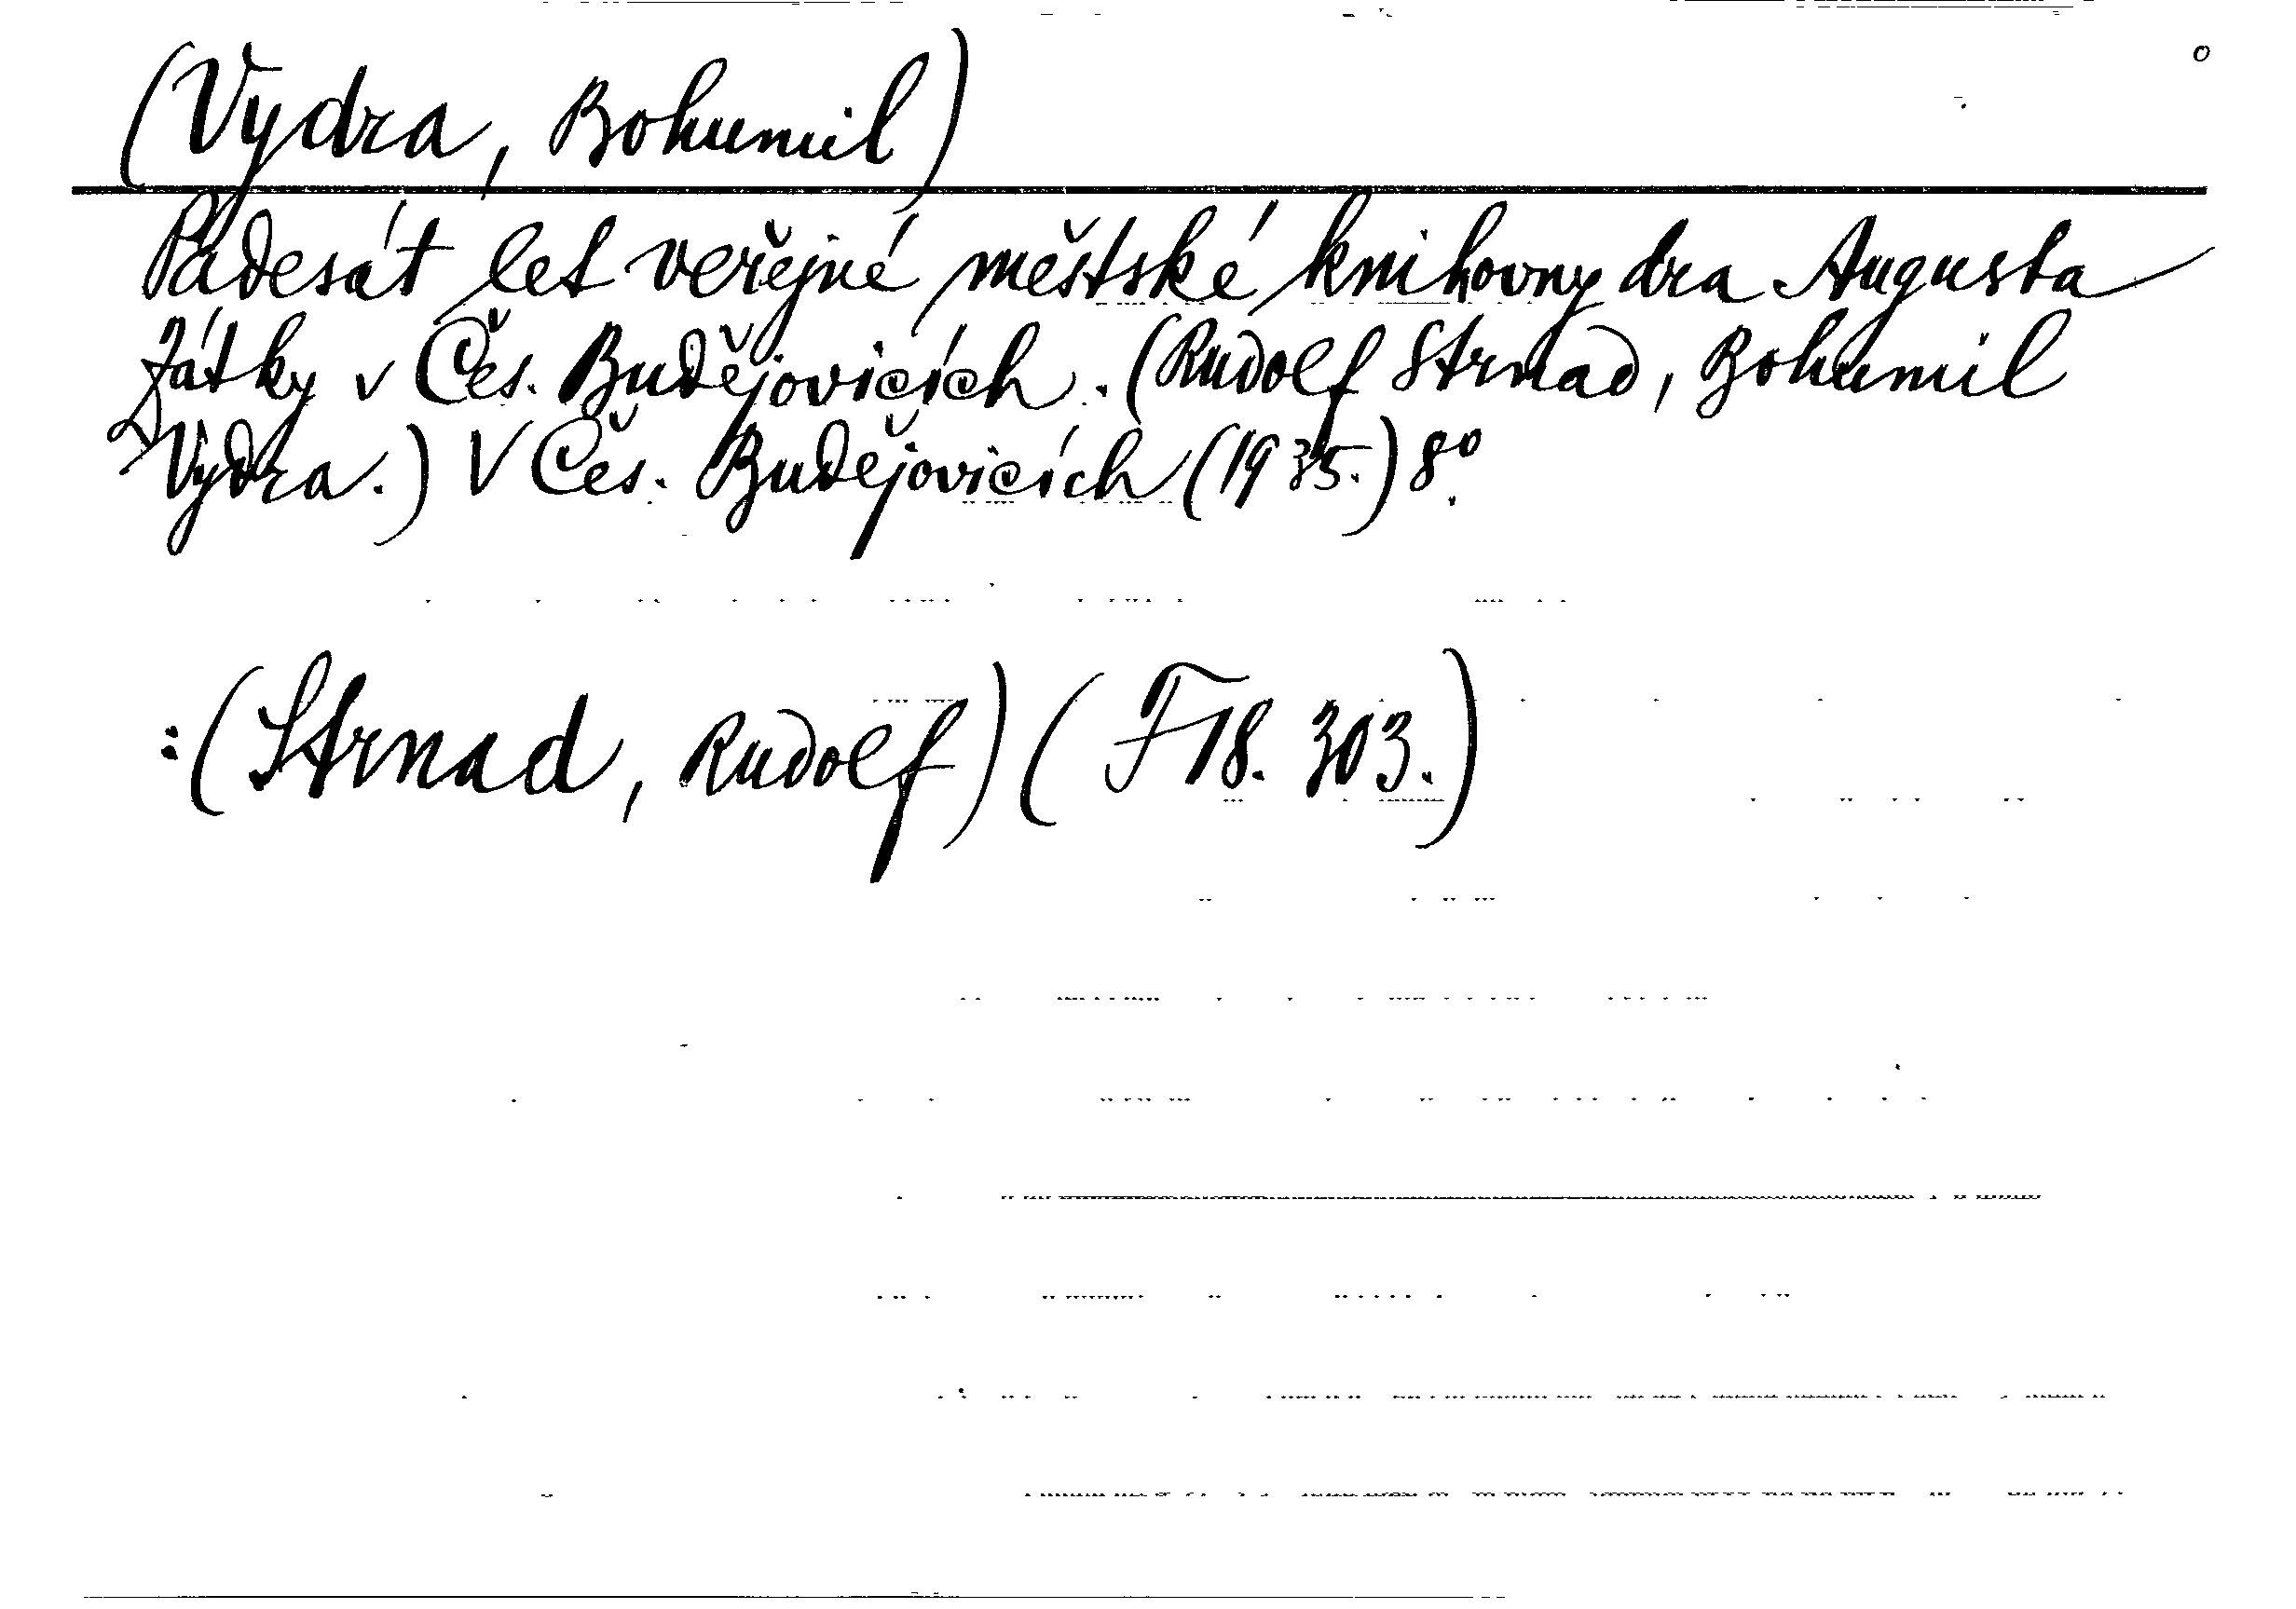 (Vydra, Bohumil)
Padesát let veřejné městské knihovny dra Augusta
Zátky v Čes. Budějovicích. (Rudolf Strnad, Bohumil
Vydra.) V Čes. Budějovicích (1935.) 8°.
:(Strnad, Rudolf) (F 18. 303.)